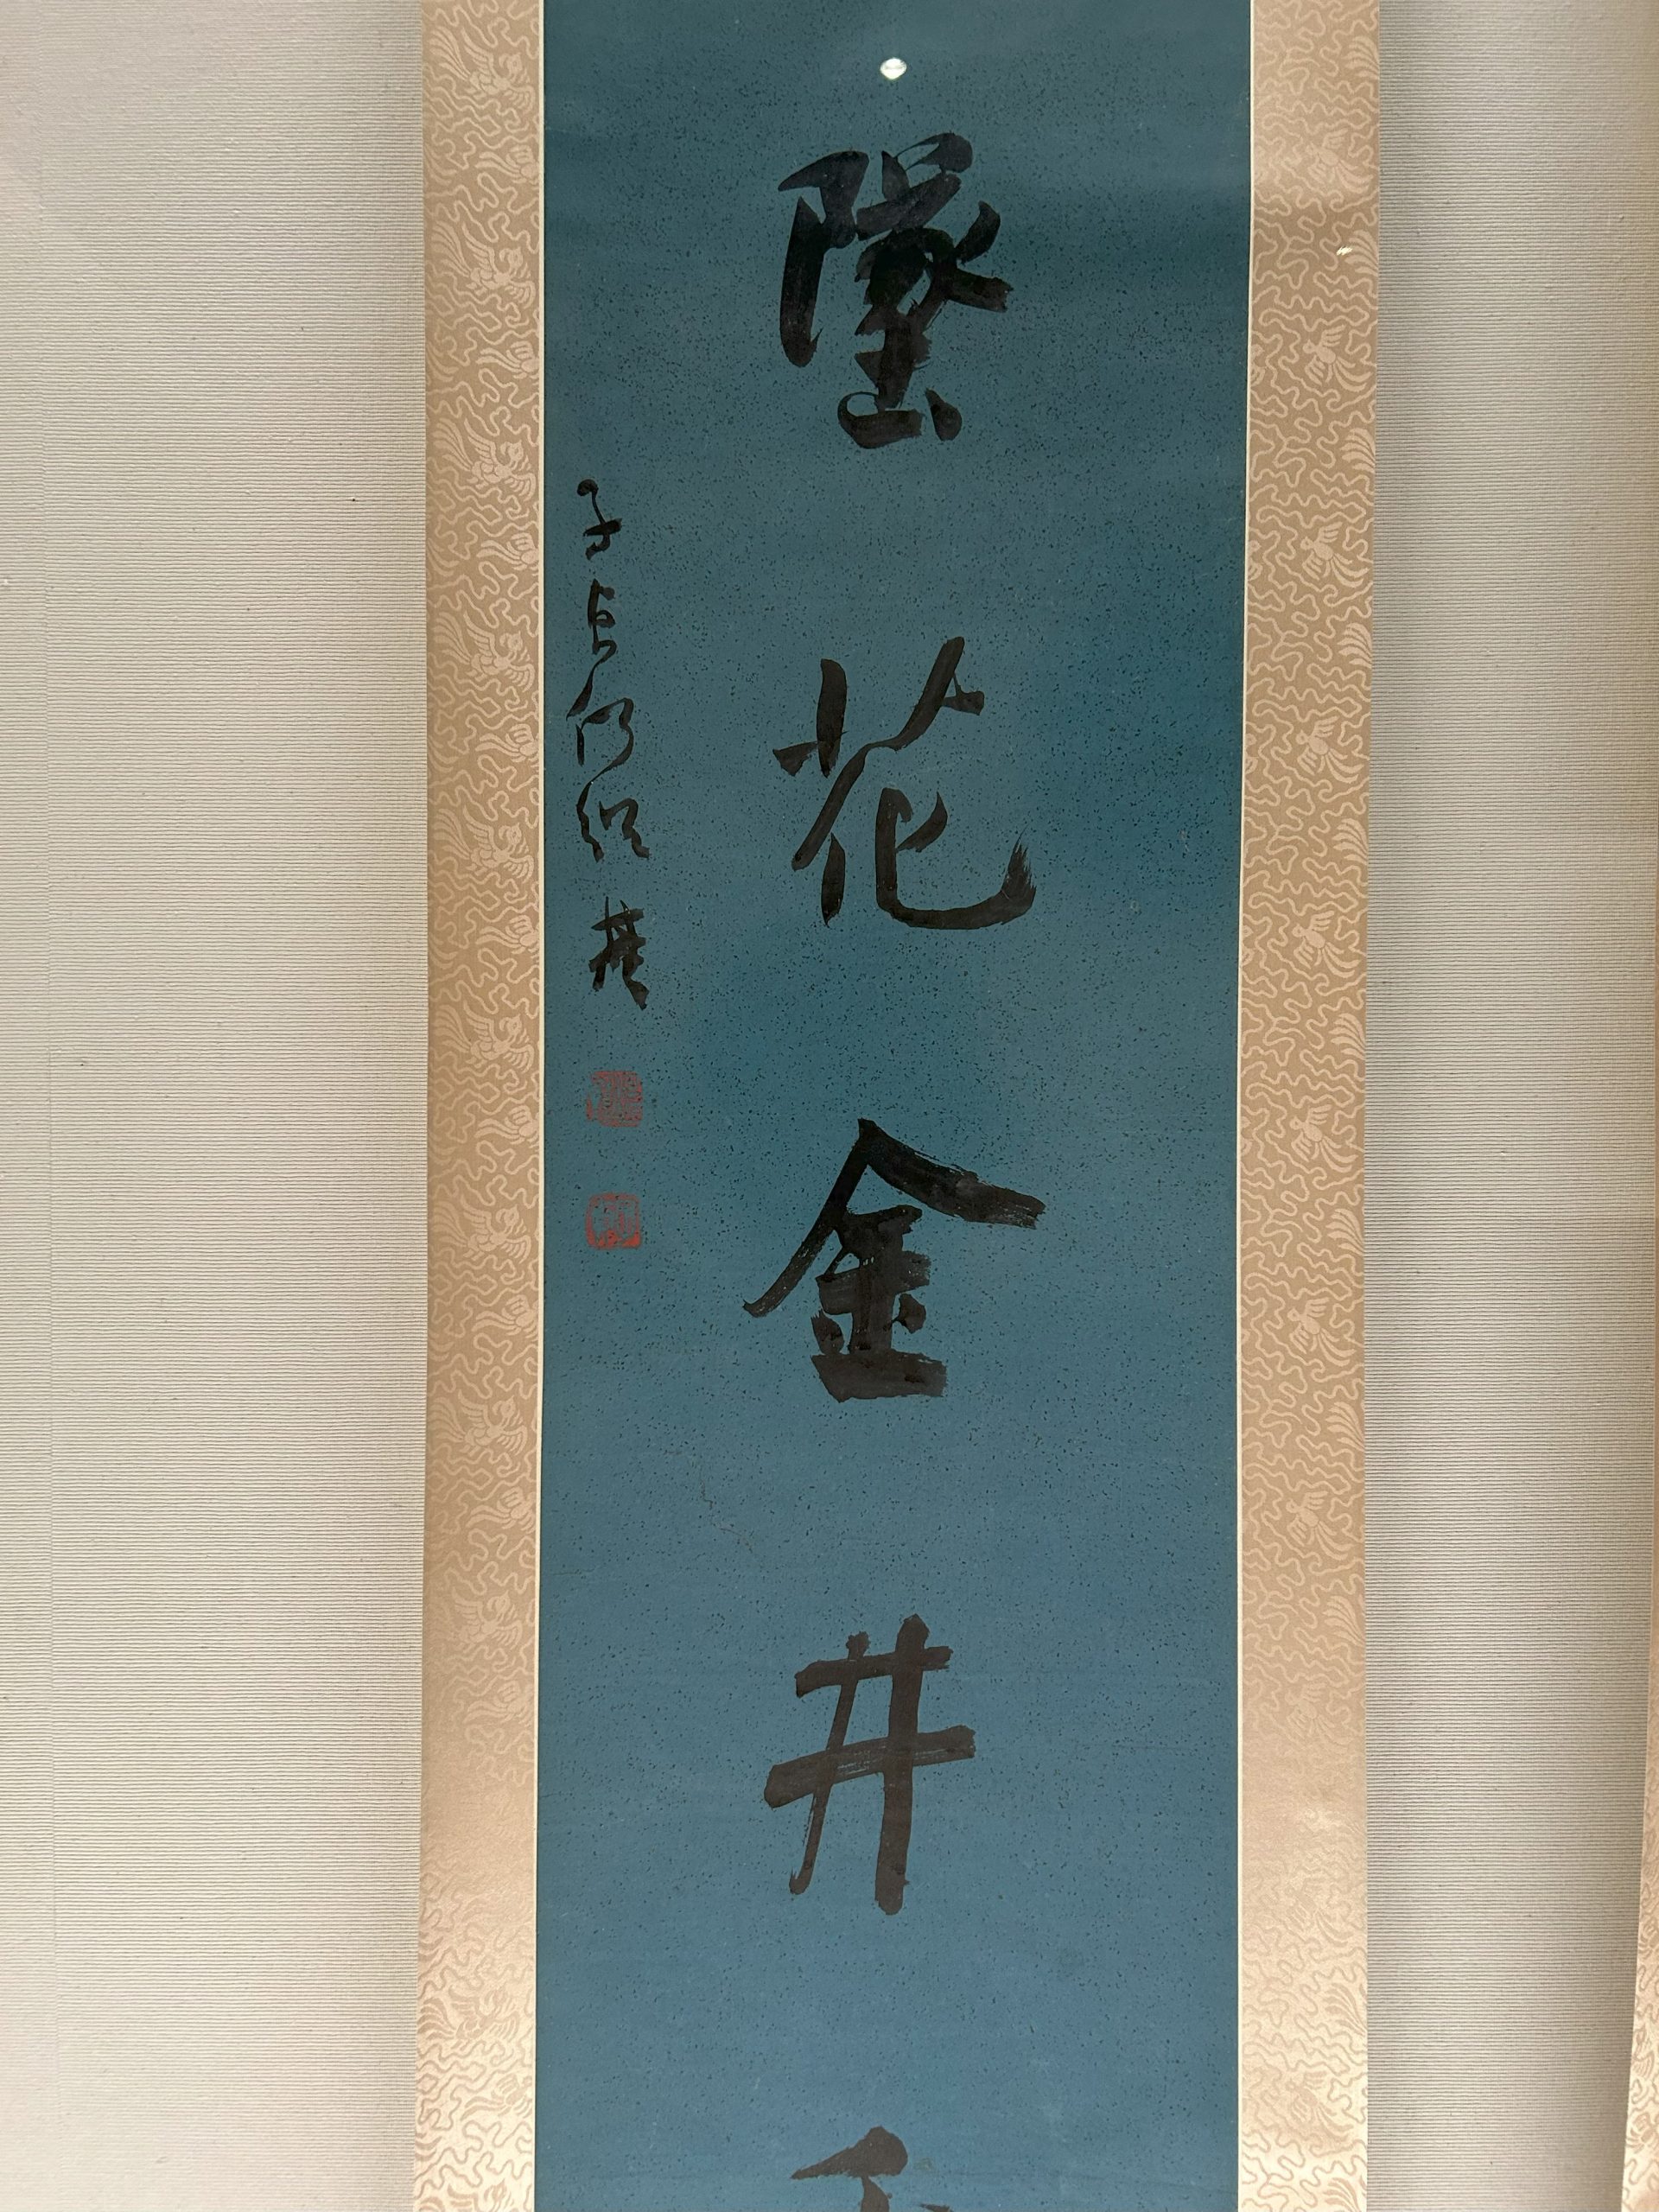 墜花金井
子貞何紹基